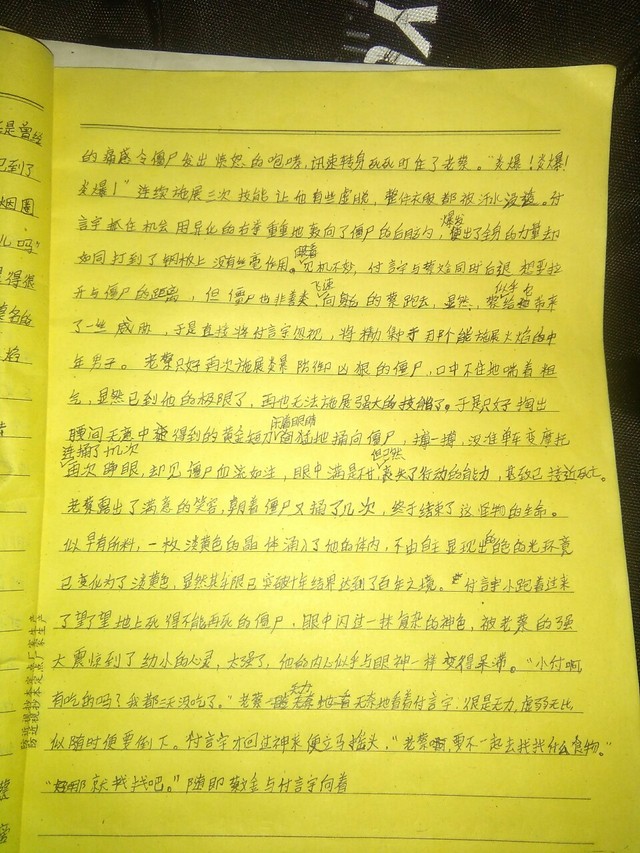 YU
是曾经
已到了
烟圈
儿吗"
得很
名的
焰
的痛感令僵尸发出愤怒的咆哮,迅速转身死死盯住了老蔡。"炎爆!炎爆!
炎爆!"连续施展三次技能让他有些虚脱,整件衣服都被汗水浸透。付
言宇抓住机会用异化的右拳重重地轰向了僵尸的后脑勺,爆发出了全身的力量却
如同打到了钢板上没有丝毫作用。眼看见机不妙,付言宇与蔡焰同时后退想要拉
开与僵尸的距离,但僵尸也非善类飞速向身后的蔡跑去,显然,蔡似乎也给带来
了一些威胁,于是直接将付言宇忽视,将精力集中于那个能施展火焰的中
年男子。老蔡只好再次施展炎爆防御凶狠的僵尸,口中不住地喘着粗
气,显然已到他的极限了,再也无法施展强大的技能了。于是只好掏出
瞬间无意中得到的黄金短刀闭着眼睛猛地捅向僵尸,搏一搏,没准单车变摩托
连捅了几次
再次睁眼,却见僵尸血流如注,眼中满是不甘,但已然丧失了行动的能力,甚至已接近死亡。
老蔡露出了满意的笑容,朝着僵尸又捅了几次,终于结束了这怪物的生命。
似早有所料,一枚淡黄色的晶体涌入了他的体内,不由自主显现出的白色的光环竟
已变化为了淡黄色,显然其年限已突破十年结界达到了百年之境。付言宇小跑着过来
了望了望地上死得不能再死的僵尸,眼中闪过一抹复杂的神色,被老蔡的强
大震惊到了幼小的心灵,太强了,他的内心似乎与眼神一样变得呆滞。"小付啊
有吃的吗?我都三天没吃了。"老蔡无力无奈地看着付言宇,很是无力,虚弱无比
似随时便要倒下。付言宇才回过神来便立马摇头,"老蔡啊,要不一起去找找什么食物。"
"好那就找找吧。"随即蔡金与付言宇向着
防近视抄本定点厂家生产